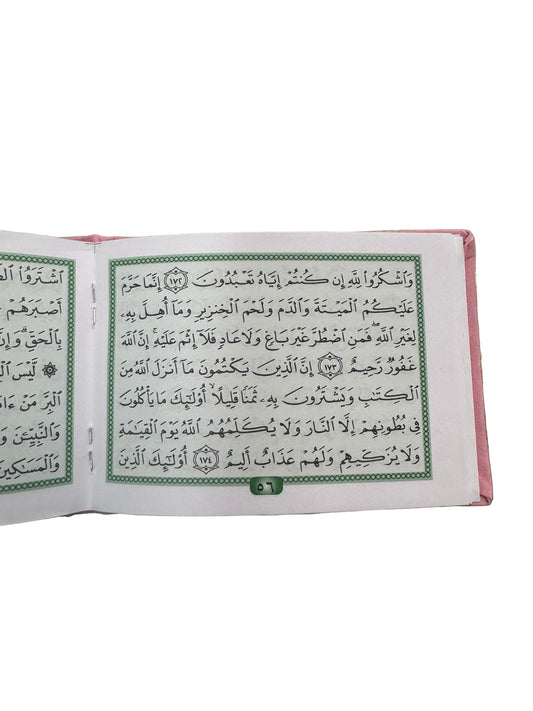 وَاشْكُرُوا لِلَّهِ إِن كُنتُمْ إِيَّاهُ تَعْبُدُونَ ١٧٢ إِنَّمَا حَرَّمَ
عَلَيْكُمُ الْمَيْتَةَ وَالدَّمَ وَلَحْمَ الْخِنزِيرِ وَمَا أُهِلَّ بِهِ
لِغَيْرِ اللَّهِ فَمَنِ اضْطُرَّ غَيْرَ بَاغٍ وَلَا عَادٍ فَلَا إِثْمَ عَلَيْهِ إِنَّ اللَّهَ
غَفُورٌ رَّحِيمٌ ١٧٣ إِنَّ الَّذِينَ يَكْتُمُونَ مَا أَنزَلَ اللَّهُ مِنَ
الْكِتَابِ وَيَشْتَرُونَ بِهِ ثَمَنًا قَلِيلًا أُولَٰئِكَ مَا يَأْكُلُونَ
فِي بُطُونِهِمْ إِلَّا النَّارَ وَلَا يُكَلِّمُهُمُ اللَّهُ يَوْمَ الْقِيَامَةِ
وَلَا يُزَكِّيهِمْ وَلَهُمْ عَذَابٌ أَلِيمٌ ١٧٤ أُولَٰئِكَ الَّذِينَ
٥٦
اشْتَرَوُا
أَصْبَرَهُمْ
بِالْحَقِّ وَإِنَّ
۞ لَّيْسَ
الْبِرَّ مَنْ
وَالنَّبِيِّينَ
وَالْمَسَاكِينَ